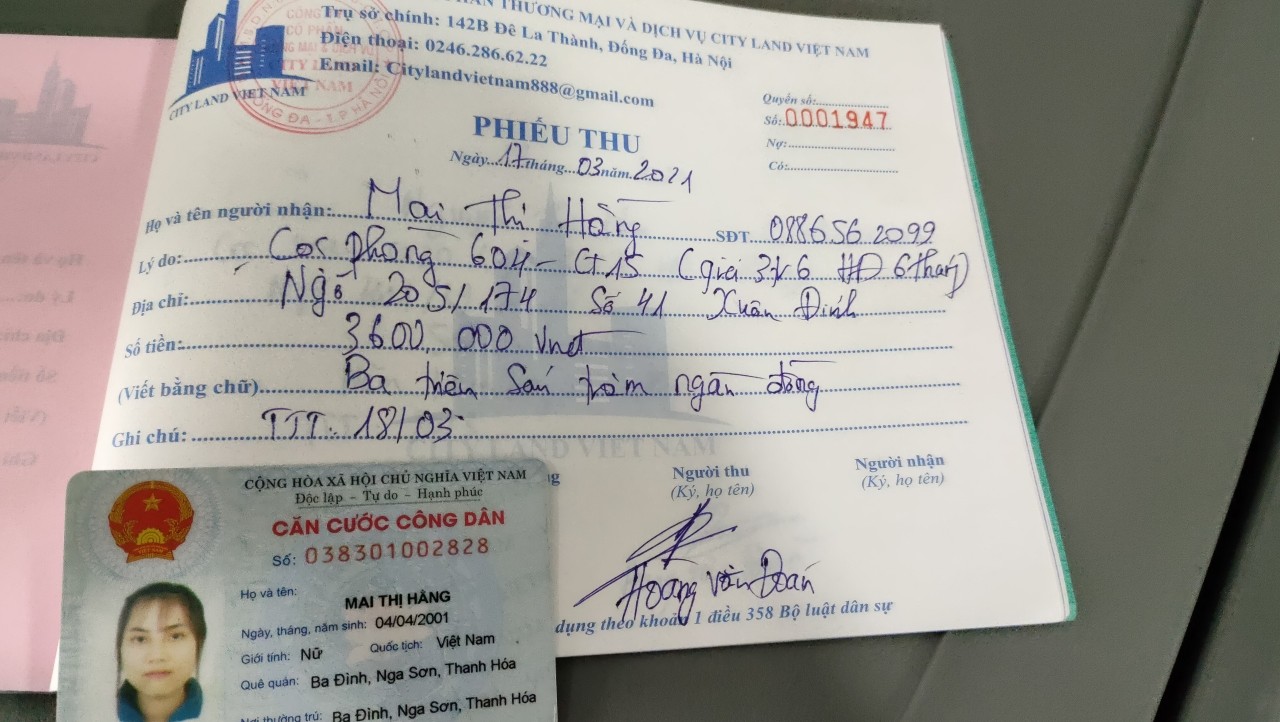 PHẦN THƯƠNG MẠI VÀ DỊCH VỤ CITY LAND VIỆT NAM
Trụ sở chính: 142B Đê La Thành, Đống Đa, Hà Nội
Điện thoại: 0246.286.62.22
Email: Citylandvietnam888@gmail.com
CITY LAND VIET NAM
Quyển số:
Số: 0001947
Nợ:
Có:
PHIẾU THU
Ngày 17 tháng 03 năm 2021
Họ và tên người nhận: Mai Thị Hằng SĐT 0886562099
Lý do: Cọc phòng 604 - CT15 (giá 3tr6 HĐ 6 tháng)
Địa chỉ: Ngõ 205/174 Số 41 Xuân Đỉnh
Số tiền: 3600.000 vnđ
(Viết bằng chữ) Ba triệu Sáu trăm ngàn đồng
Ghi chú: TTT: 18/03
CITY LAND VIET NAM
Người thu
(Ký, họ tên)
Người nhận
(Ký, họ tên)
Hoàng Văn Đoán
dụng theo khoản 1 điều 358 Bộ luật dân sự
CỘNG HÒA XÃ HỘI CHỦ NGHĨA VIỆT NAM
Độc lập - Tự do - Hạnh phúc
CĂN CƯỚC CÔNG DÂN
Số: 038301002828
Họ và tên: MAI THỊ HẰNG
Ngày, tháng, năm sinh: 04/04/2001
Giới tính: Nữ Quốc tịch: Việt Nam
Quê quán: Ba Đình, Nga Sơn, Thanh Hóa
Nơi thường trú: Ba Đình, Nga Sơn, Thanh Hóa